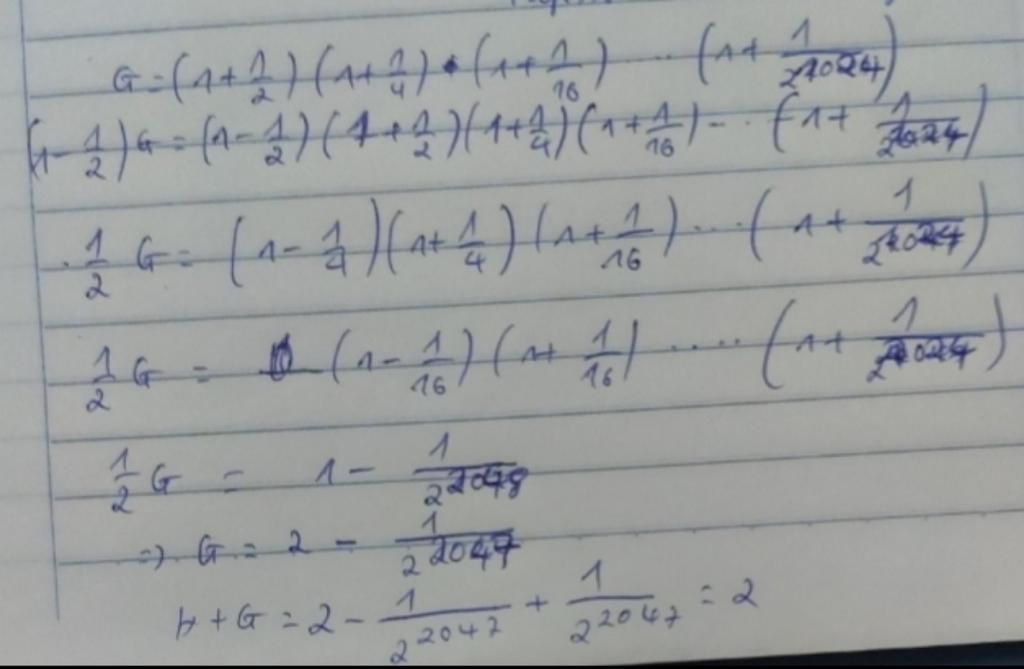 G = (1 + 1/2) (1 + 1/4) • (1 + 1/16) ..... (1 + 1/2^1024)
(1 - 1/2) G = (1 - 1/2) (1 + 1/2) (1 + 1/4) (1 + 1/16) - .. (1 + 1/2^1024)
. 1/2 G = (1 - 1/4) (1 + 1/4) (1 + 1/16) .... (1 + 1/2^1024)
1/2 G = (1 - 1/16) (1 + 1/16) ..... (1 + 1/2^1024)
1/2 G = 1 - 1/2^2048
=> G = 2 - 1/2^2047
+ G = 2 - 1/2^2047 + 1/2^2047 = 2